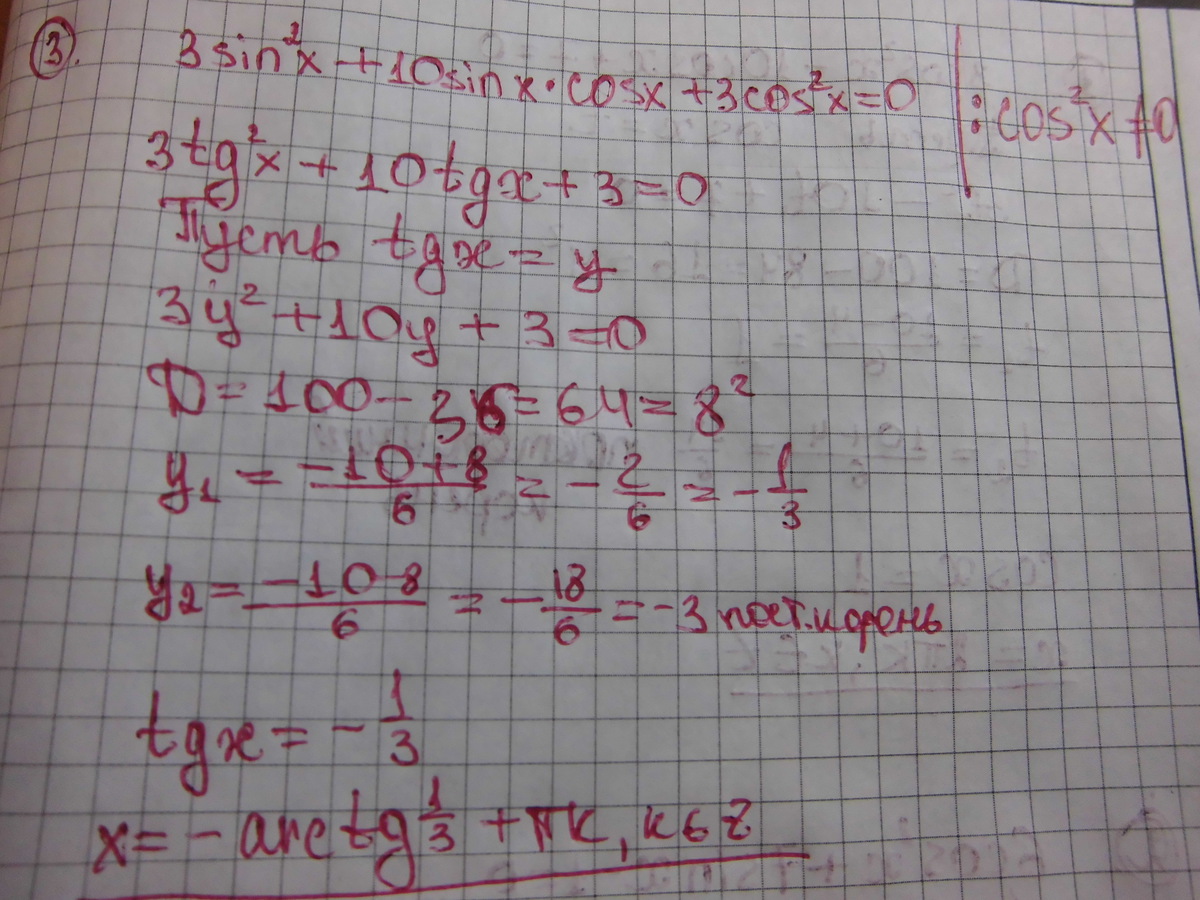 3. 3sin²x + 10sinx·cosx + 3cos²x = 0 | :cos²x ≠ 0
3tg²x + 10tgx + 3 = 0
Пусть tgx = y
3y² + 10y + 3 = 0
D = 100 - 36 = 64 = 8²
y₁ = (-10+8)/6 = -2/6 = -1/3
y₂ = (-10-8)/6 = -18/6 = -3 пост.корень
tgx = -1/3
x = -arctg 1/3 + πк, к ϵ z